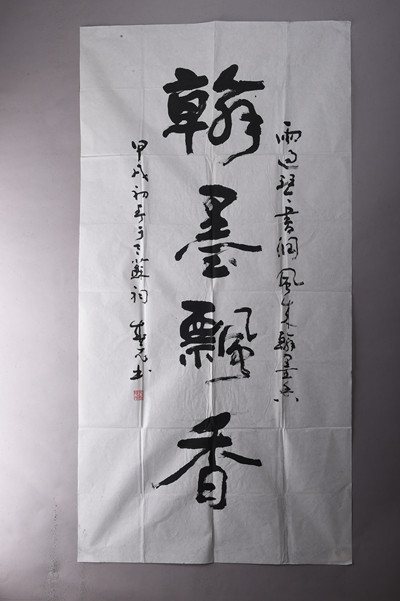 雨過琴書潤風來翰墨香
翰墨飄香
甲戌初于三蘇祠書